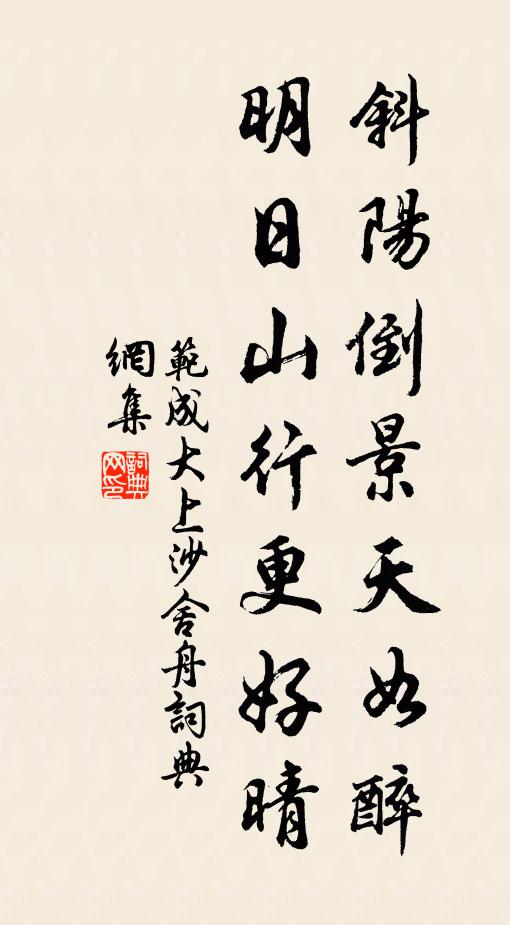 斜陽倒景天如醉
明日山行更好晴
範成大上沙舍舟詞典
網集
詞典
网印